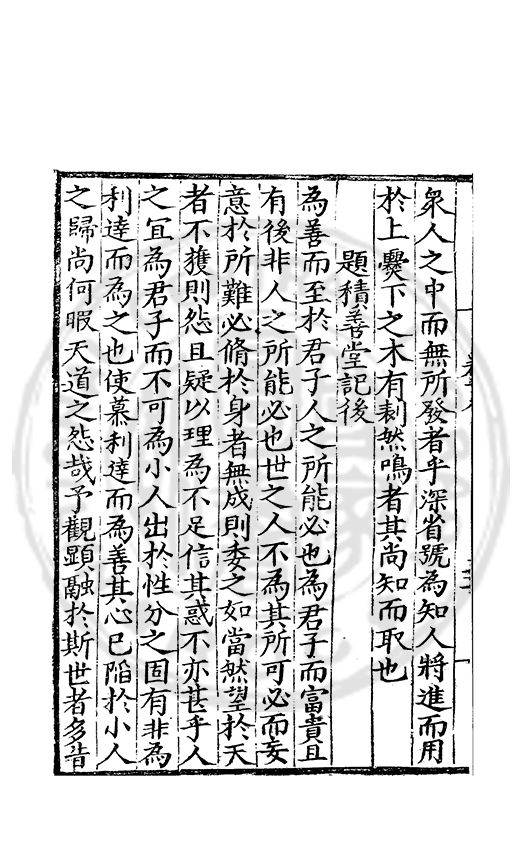 衆人之中而無所發者乎深省號為知人將進而用
於上爨下之木有剨然鳴者其尚知而取也
題積善堂記後
為善而至於君子人之所能必也為君子而富貴且
有後非人之所能必也世之人不為其所可必而妄
意於所難必脩於身者無成則委之如當然望於天
者不獲則怨且疑以理為不足信其惑不亦甚乎人
之宜為君子而不可為小人出於性分之固有非為
利達而為之也使慕利達而為善其心已陷於小人
之歸尚何暇天道之怨哉予觀顯融於斯世者多昔